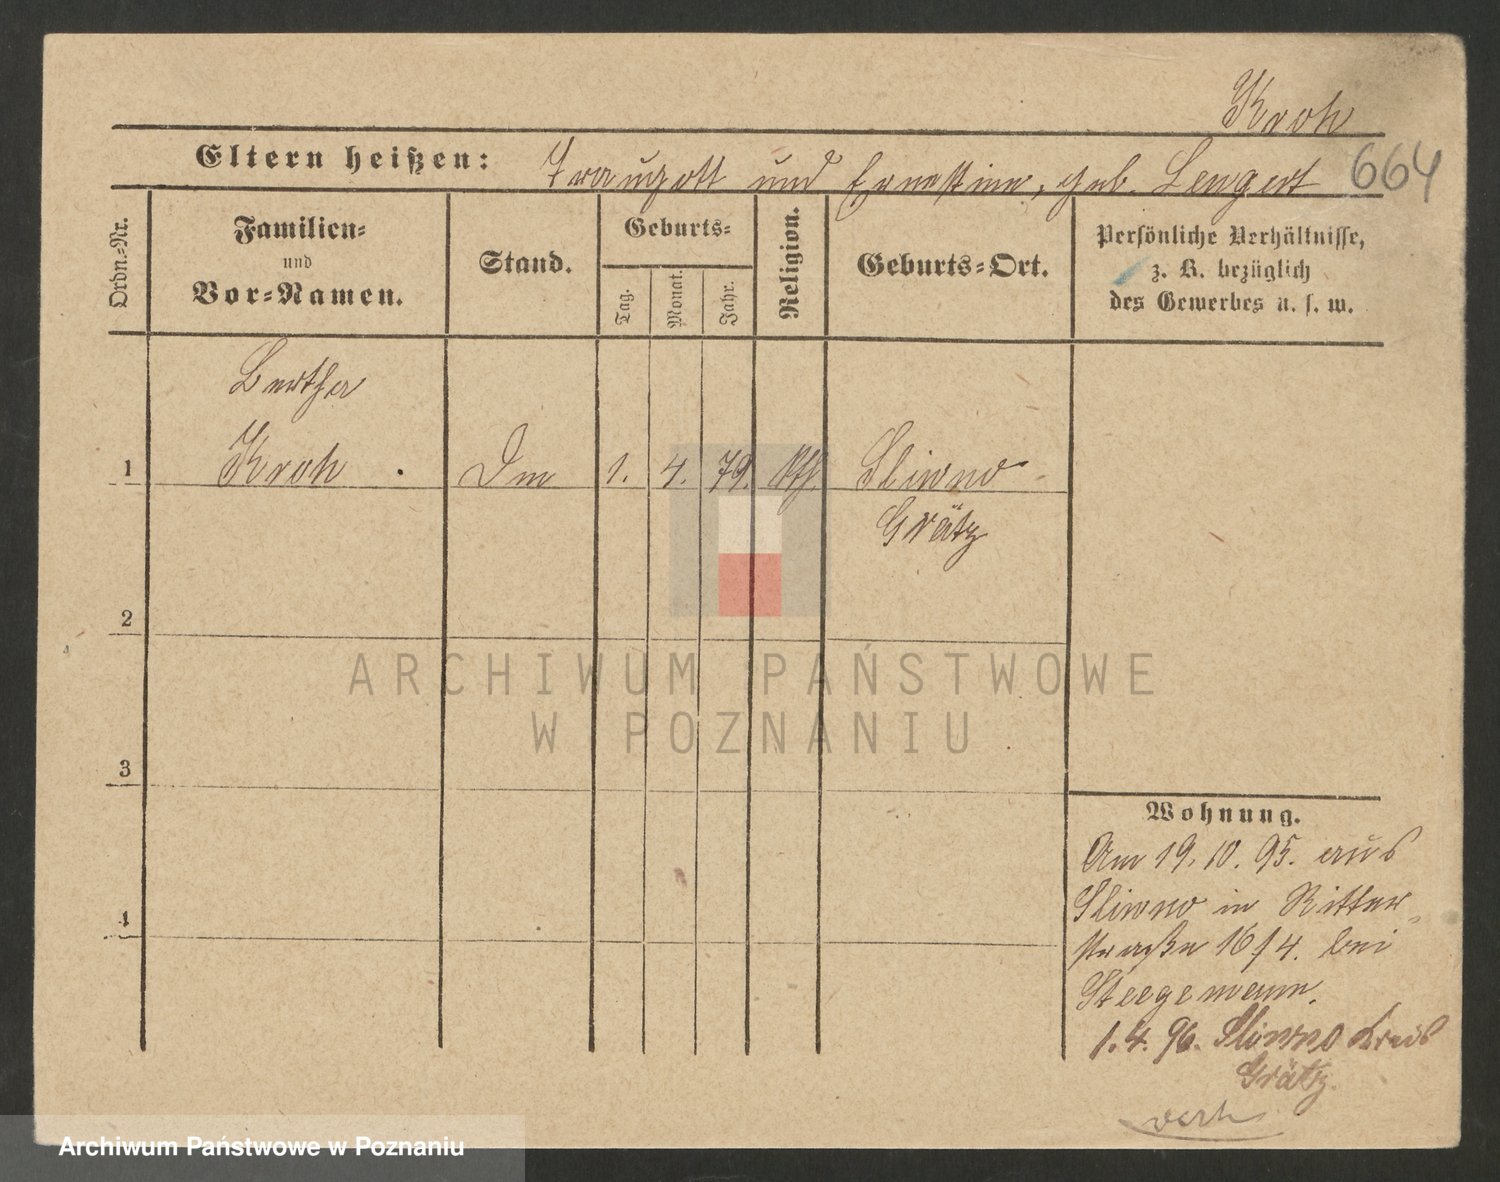 Kroh
664
Eltern heißen: Traugott und Ernestine, geb. Lengert
Ordn.-Nr.
Familien-
und
Vor-Namen.
Stand.
Geburts-
Tag.
Monat.
Jahr.
Religion.
Geburts-Ort.
Persönliche Verhältnisse,
z. B. bezüglich
des Gewerbes u. s. w.
Bertha
1 Kroh . 1. 4. 79. Sliwno
Grätz
2
3
4
Wohnung.
Am 19. 10. 95. aus
Sliwno in Ritter-
straße 16/4. bei
Steegemann.
1. 4. 96. Sliwno Kreis
Grätz.
ARCHIWUM PAŃSTWOWE
W POZNANIU
Archiwum Państwowe w Poznaniu